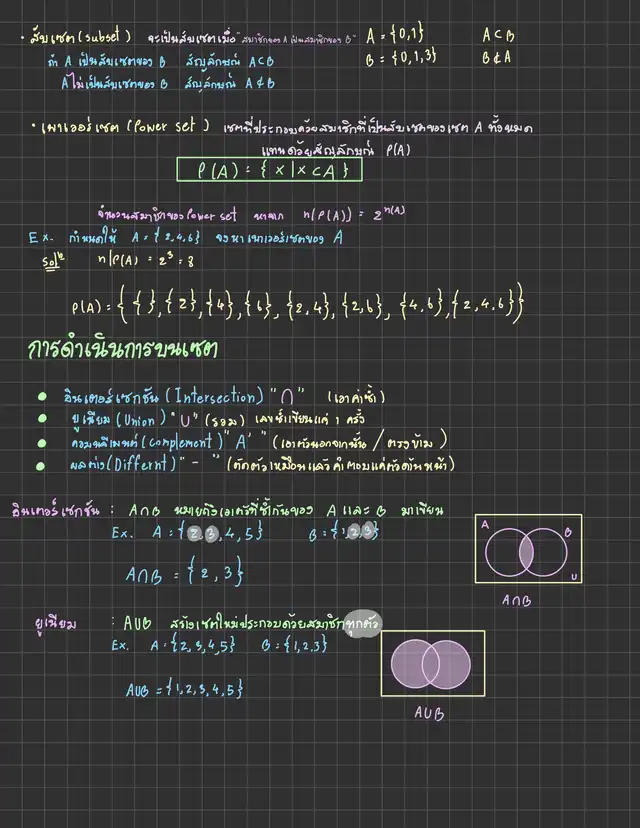 • สับเซต (subset) จะเป็นสับเซตเมื่อ "สมาชิกของ A เป็นสมาชิกของ B" A = {0,1} A⊂B
ถ้า A เป็นสับเซตของ B สัญลักษณ์ A⊂B B = {0,1,3} B⊄A
A ไม่เป็นสับเซตของ B สัญลักษณ์ A⊄B
• เพาเวอร์เซต (Power set) เซตที่ประกอบด้วยสมาชิกที่เป็นสับเซตของเซต A ทั้งหมด
แทนด้วยสัญลักษณ์ P(A)
P(A) = { x | x ⊂ A }
จำนวนสมาชิกของ Power set หาจาก n(P(A)) = 2ⁿ⁽ᴬ⁾
Ex. กำหนดให้ A = { 2,4,6} จงหาเพาเวอร์เซตของ A
n|P(A) = 2³ = 8
P(A) = { { }, {2}, {4}, {6}, {2,4}, {2,6}, {4,6}, {2,4,6} }
การดำเนินการบนเซต
• อินเตอร์เซกชัน (Intersection) "∩" (เอาค่าซ้ำ)
• ยูเนียน (Union) "∪" (รวม) เลขซ้ำเขียนแค่ 1 ครั้ง
• คอมพลีเมนต์ (Complement) "A'" (เอาตัวนอกจากนั้น / ตรงข้าม)
• ผลต่าง (Differnt) "-" (ตัดตัวเหมือนแล้วคำตอบแค่ตัวด้านหน้า)
อินเตอร์เซกชัน : A∩B หมายถึงเอาตัวที่ซ้ำกันของ A และ B มาเขียน
Ex. A = {2,3,4,5} B = {1,2,3}
A B
U
A∩B = {2,3}
A∩B
ยูเนียน : A∪B สร้างเซตใหม่ประกอบด้วยสมาชิกทุกตัว
Ex. A = {2,3,4,5} B = {1,2,3}
A∪B = {1,2,3,4,5}
A∪B